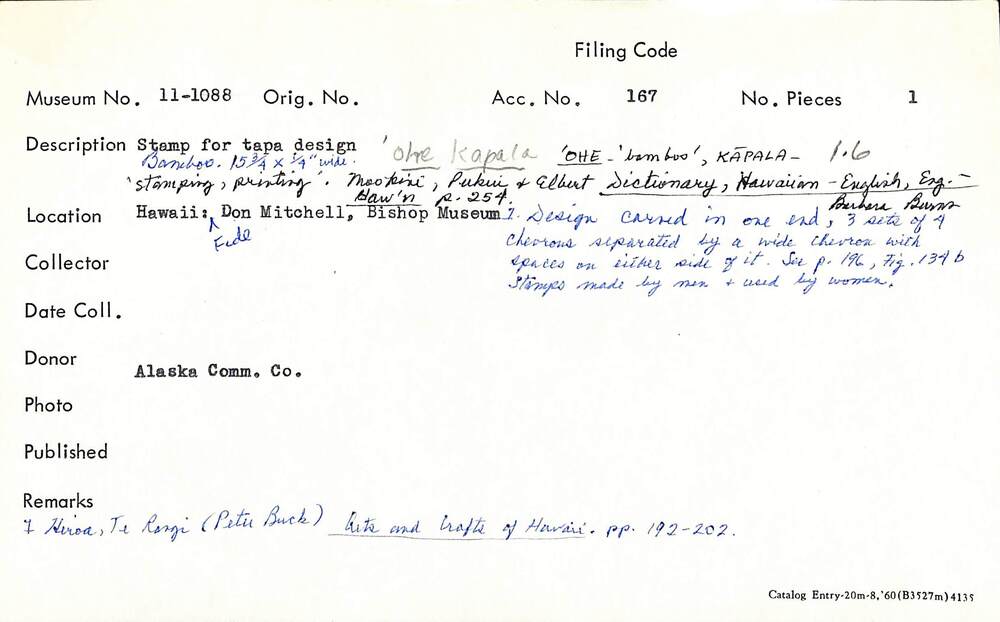 Filing Code
Museum No. 11-1088 Orig. No. Acc. No. 167 No. Pieces 1
Description Stamp for tapa design 'ohe kapala 'OHE - 'bamboo', KĀPALA - 1.6
Bamboo. 15 3/4 x 1/4" wide.
'stamping, printing'. Mookini, Pukui & Elbert Dictionary, Hawaiian - English, Eng. -
Haw'n p. 254. Barbara Burns
Location Hawaii: Don Mitchell, Bishop Museum 1. Design carved in one end, 3 sets of 4
Fide
chevrons separated by a wide chevron with
Collector spaces on either side of it. See p. 196, Fig. 134 b
Stamps made by men & used by women.
Date Coll.
Donor Alaska Comm. Co.
Photo
Published
Remarks
1 Hiroa, Te Rangi (Peter Buck) Arts and Crafts of Hawaii. pp. 192-202.
Catalog Entry-20m-8,'60(B3527m)4135